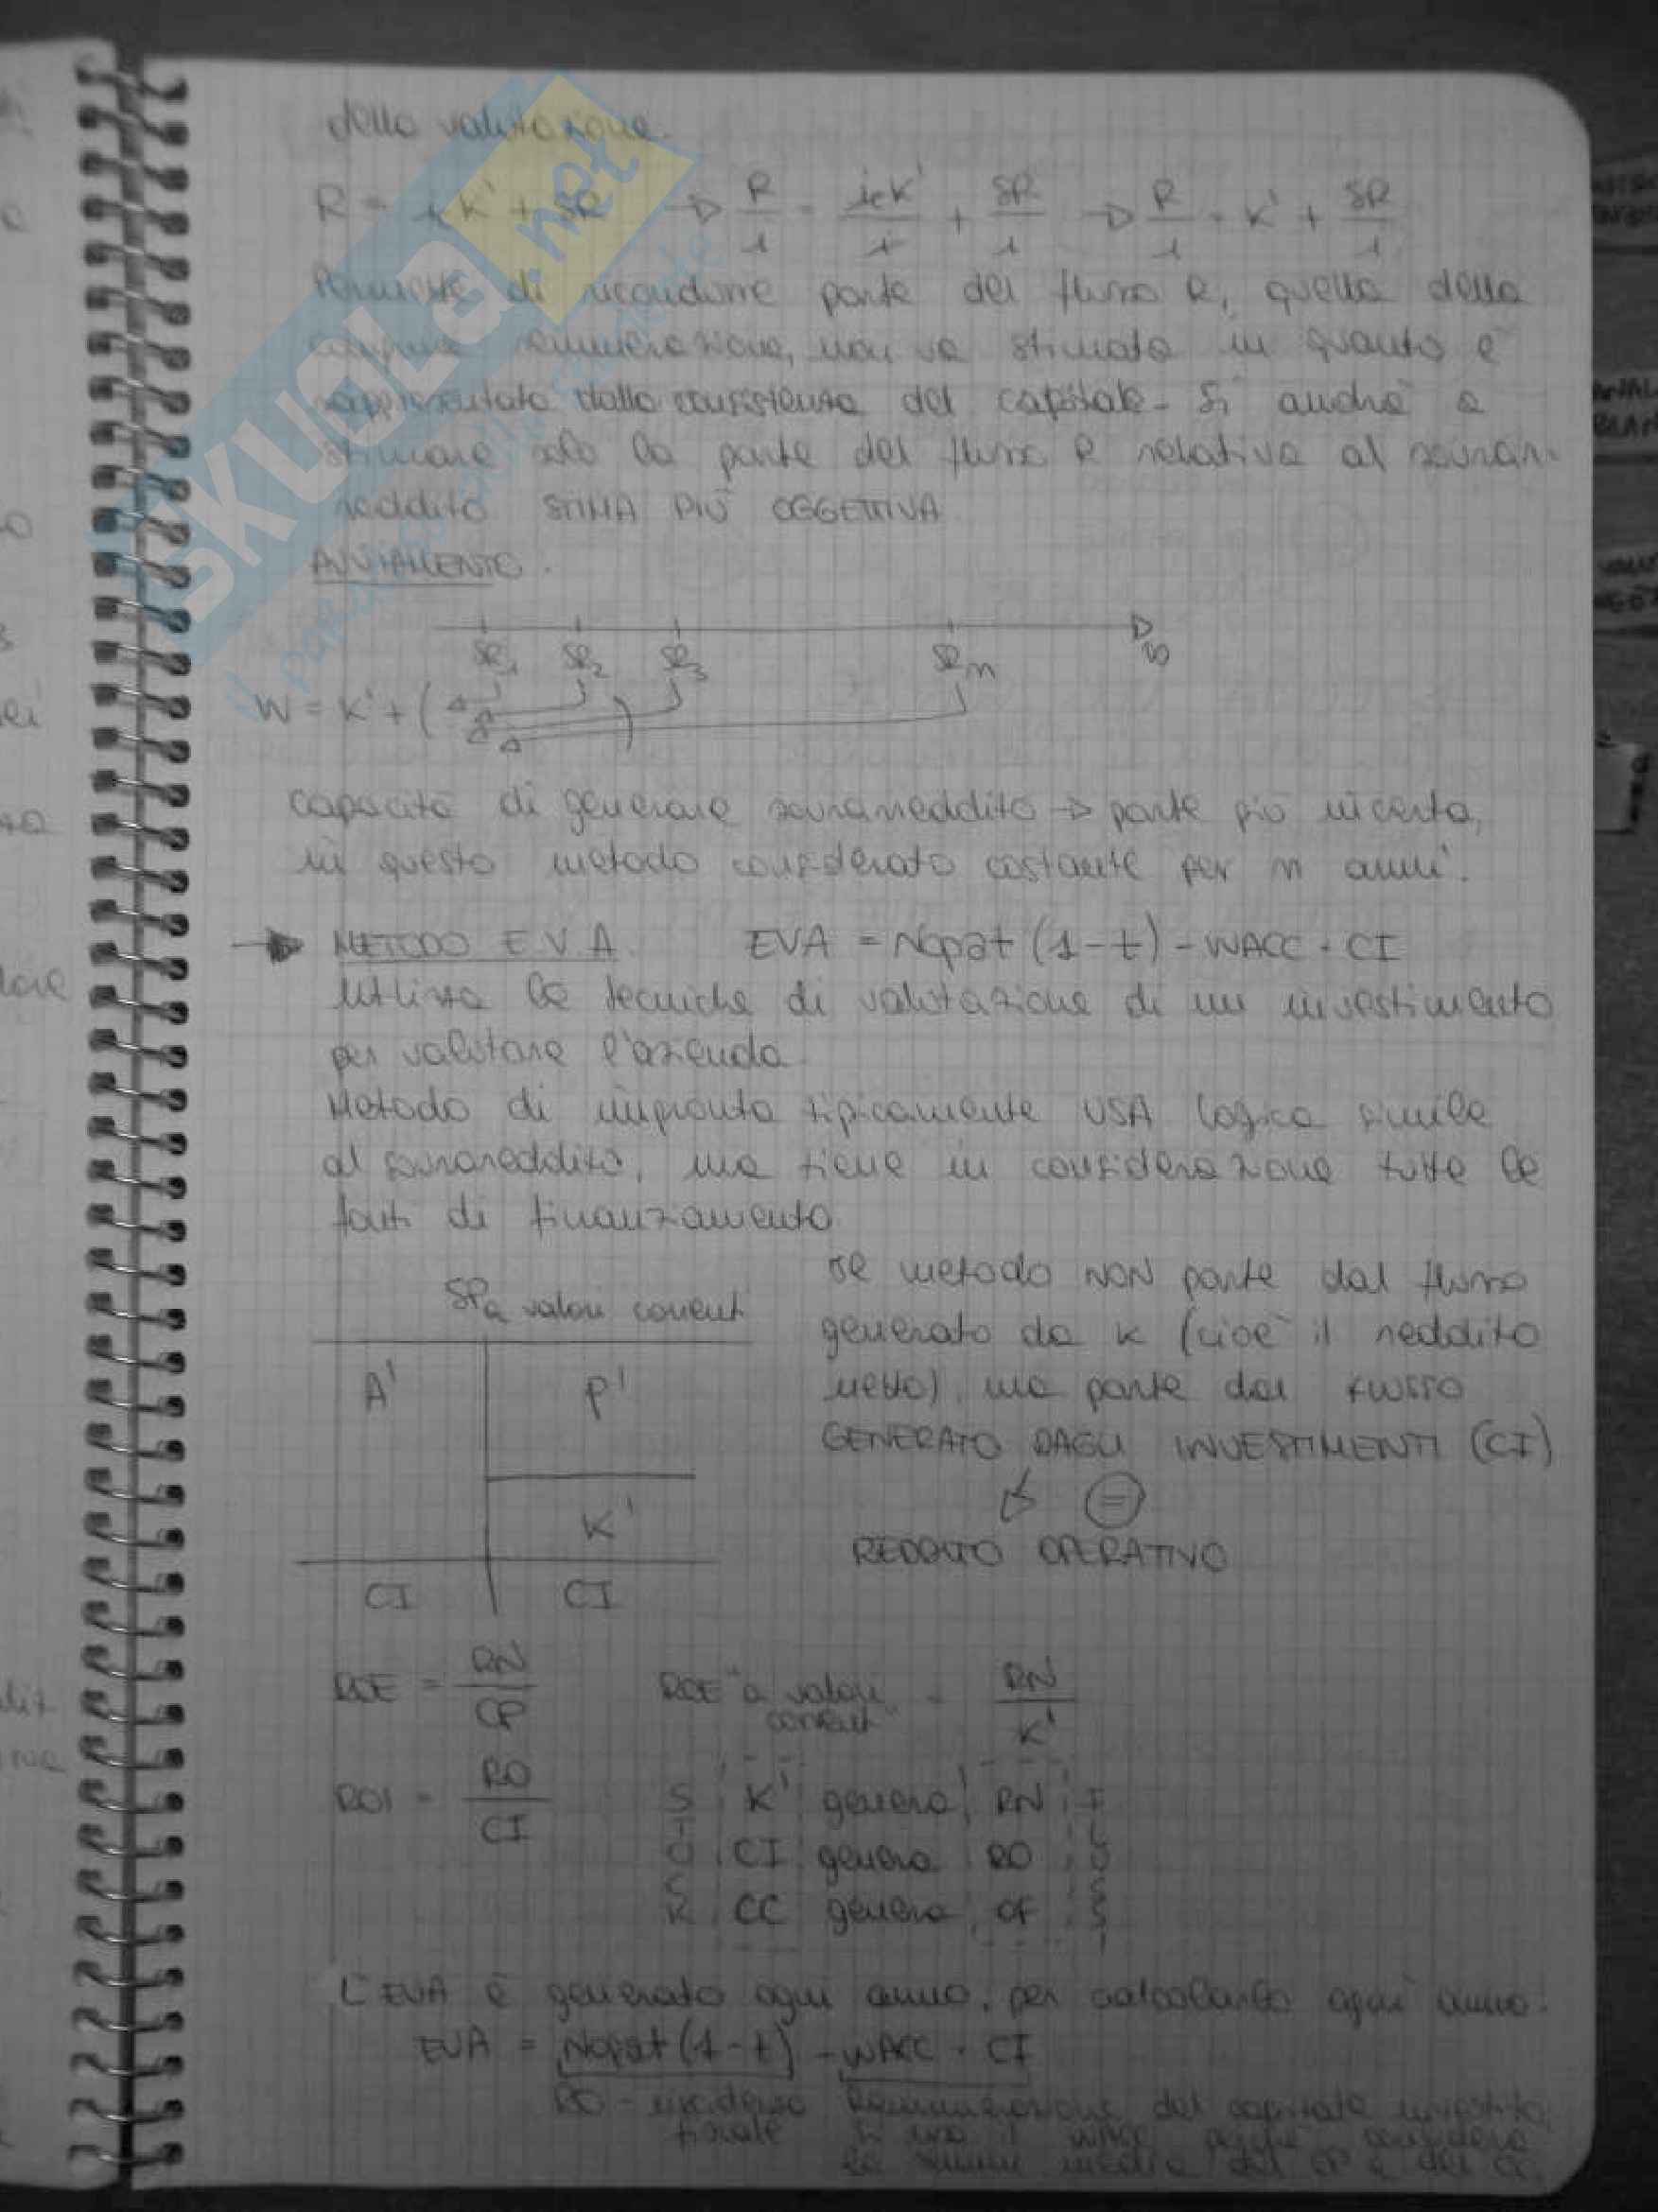 della valutazione.
R = i K' + SR → R/i = i K'/i + SR/i → R/i = K' + SR/i
Permette di ricondurre parte del flusso R, quella della
congrua remunerazione, non va stimata in quanto è
rappresentata dalla consistenza del capitale. Si andrà a
stimare solo la parte del flusso R relativa al sovrar-
reddito STIMA PIÙ OGGETTIVA
AVVIAMENTO.
SR1 SR2 SR3 SRn
W = K' + ( )
capacità di generare sovrarreddito → parte più incerta,
in questo metodo considerato costante per n anni.
→ METODO E.V.A. EVA = Nopat (1-t) - WACC · CI
Utilizza le tecniche di valutazione di un investimento
per valutare l'azienda
Metodo di impronta tipicamente USA logica simile
al sovrareddito, ma tiene in considerazione tutte le
fonti di finanziamento
SP a valori correnti
A' P'
K'
CI CI
Il metodo NON parte dal flusso
generato da K (cioè il reddito
netto), ma parte dal FLUSSO
GENERATO DAGLI INVESTIMENTI (CI)
=
REDDITO OPERATIVO
ROE = RN/CP ROE "a valori correnti" = RN/K'
ROI = RO/CI
STOCK FLUSSI
K' genera RN
CI genera RO
CC genera CF
L'EVA è generato ogni anno, per calcolarlo ogni anno:
EVA = Nopat (1-t) - WACC · CI
RO - incidenza fiscale
Remunerazione del capitale investito
si usa il WACC perché considera
la remun media del CP e del